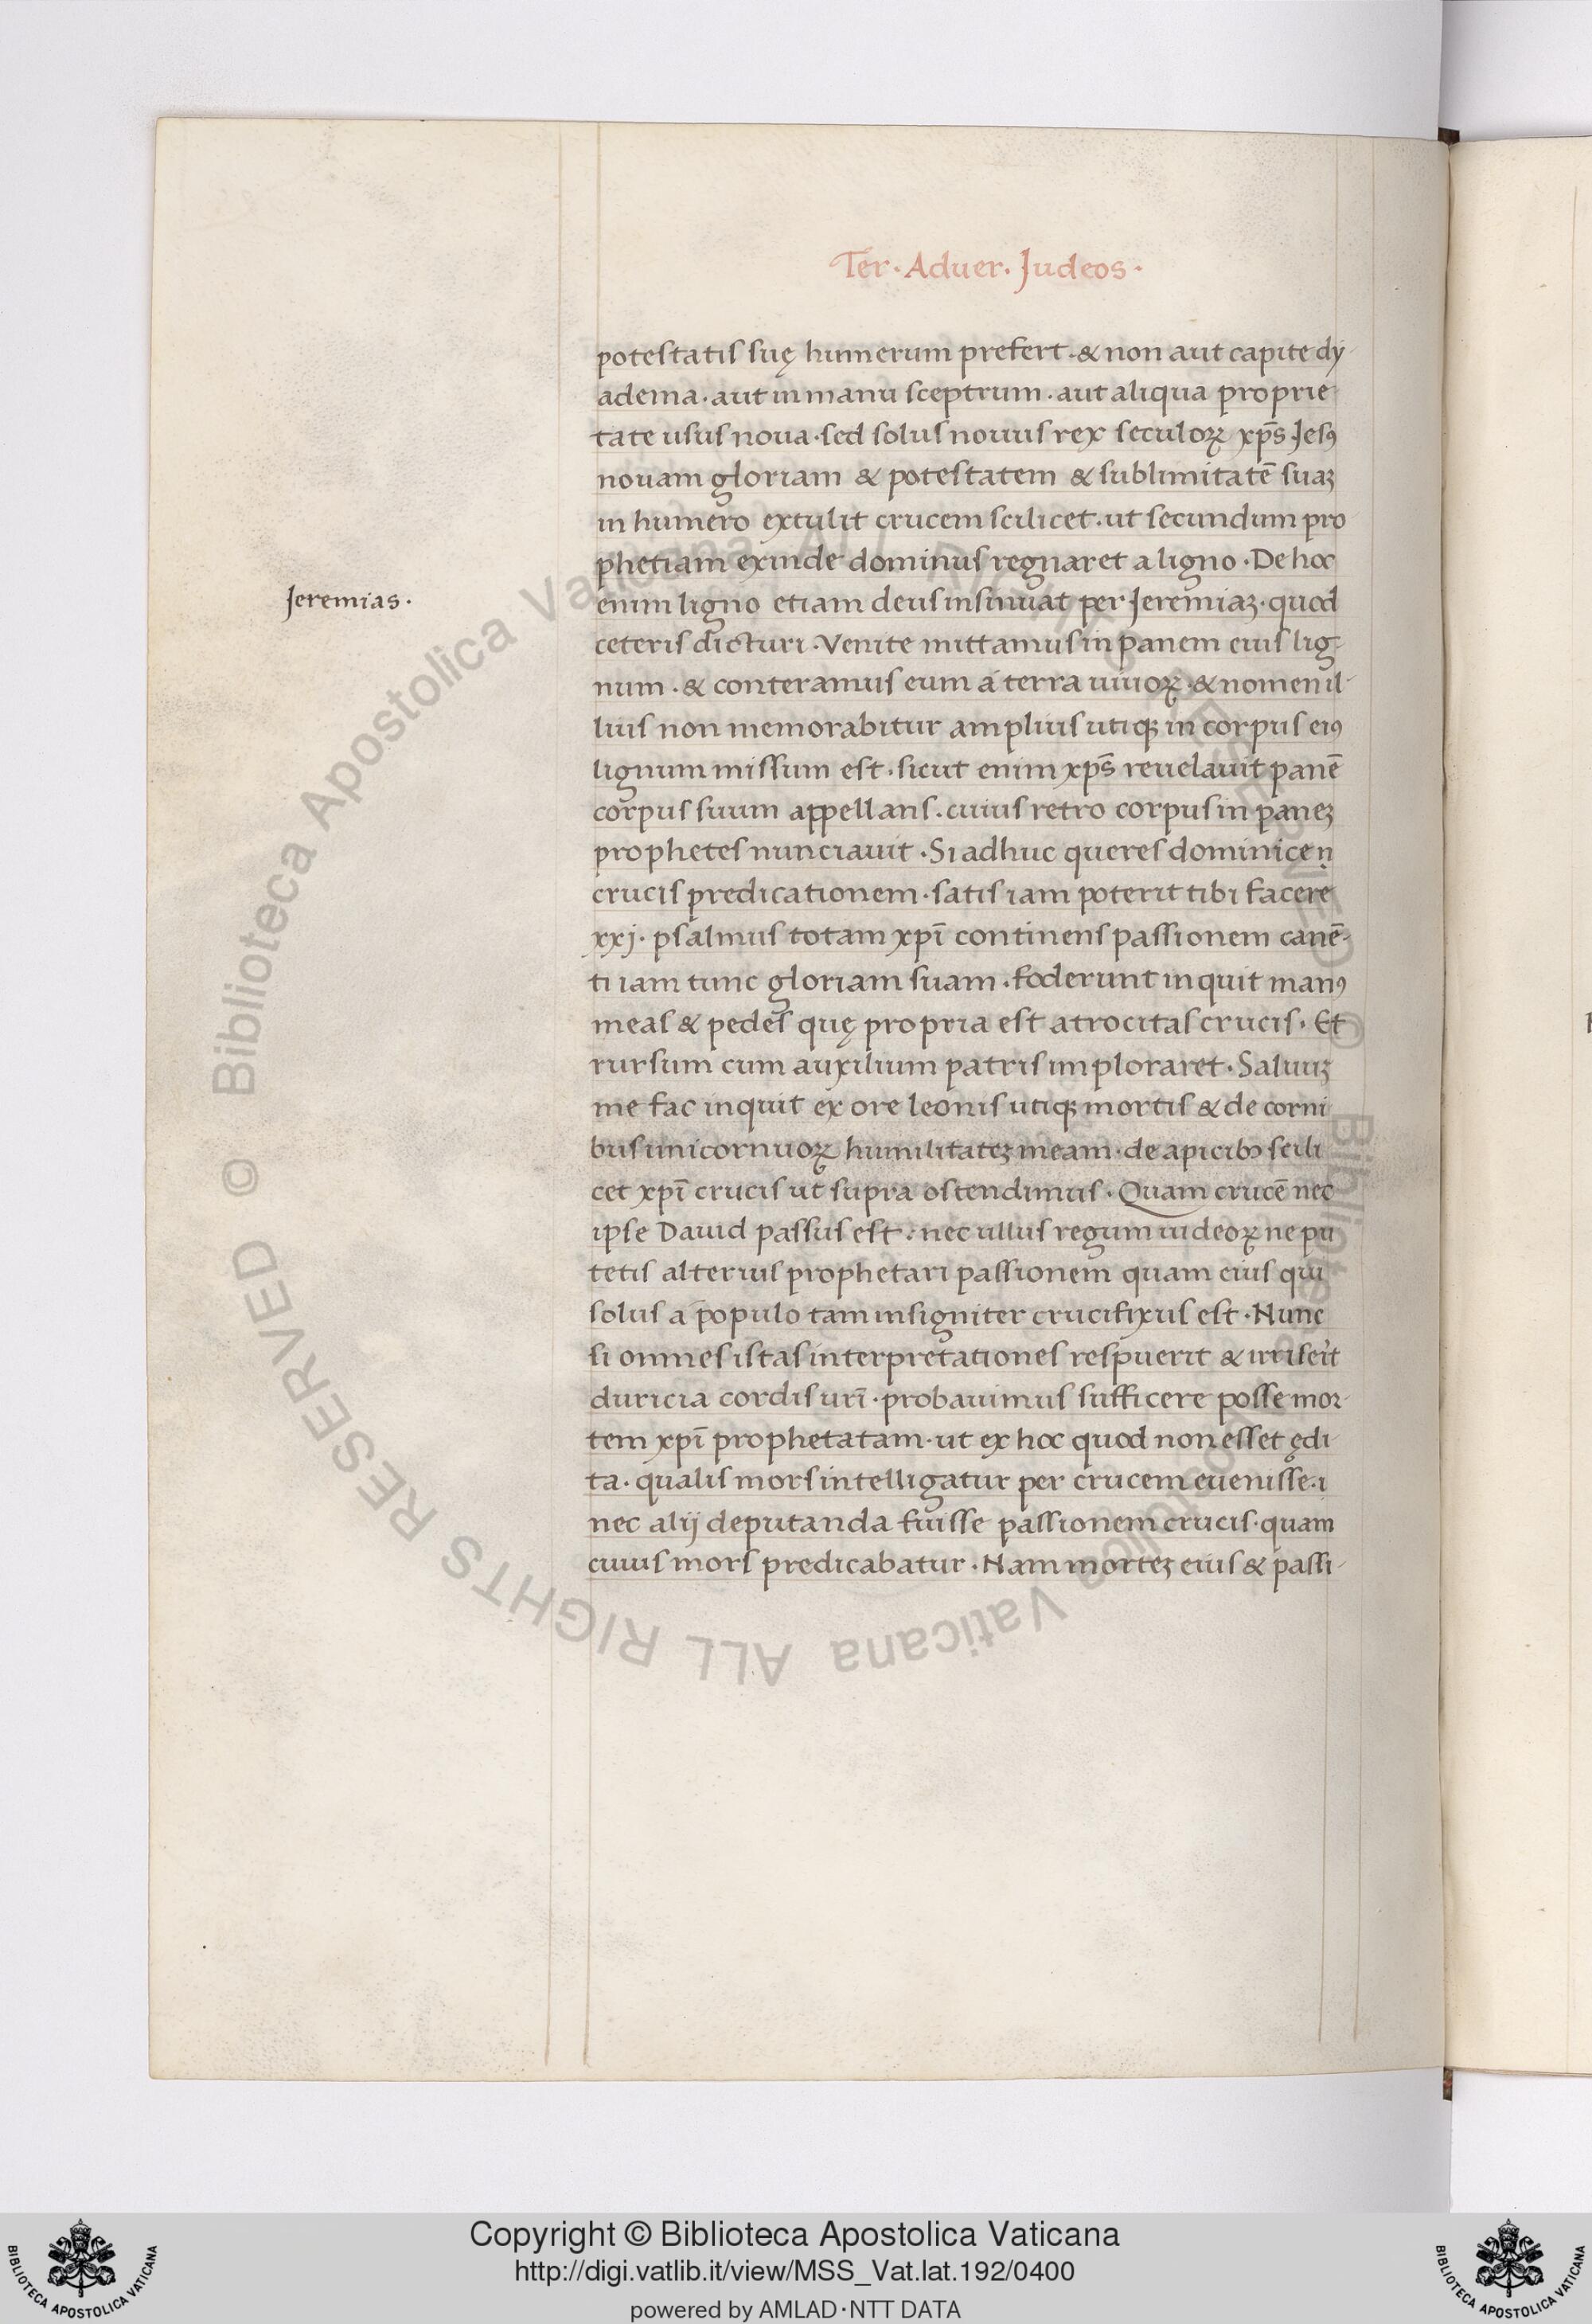 Ter · Aduer · Judeos ·
potestatis suę humerum prefert · & non aut capite dy-
adema · aut in manu sceptrum · aut aliqua proprie-
tate usus noua · sed solus nouus rex seculoꝝ xp̄s Jesꝰ
nouam gloriam & potestatem & sublimitatē suaꝫ
in humero extulit crucem scilicet · ut secundum pro
phetiam exinde dominus regnaret a ligno · De hoc
Jeremias ·
enim ligno etiam deus insinuat per Jeremiaꝫ · quod
ceteris dicturi · Venite mittamus in panem eius lig-
num · & conteramus eum á terra uiuoꝝ · & nomen il-
lius non memorabitur amplius utiqꝫ in corpus eiꝰ
lignum missum est · sicut enim xp̄s reuelauit panē
corpus suum appellans · cuius retro corpus in paneꝫ
prophetes nunciauit · Si adhuc queres dominice ṇ
crucis predicationem · satis iam poterit tibi facere
xxj · psalmus totam xpī continens passionem canē-
ti iam tunc gloriam suam · foderunt inquit manꝰ
meas & pedes quę propria est atrocitas crucis · Et
rursum cum auxilium patris imploraret · Saluuꝫ
me fac inquit ex ore leonis utiqꝫ mortis & de corni
bus unicornuoꝝ humilitateꝫ meam · de apicibꝫ scili
cet xpī crucis ut supra ostendimus · Quam crucē nec
ipse Dauid passus est · nec ullus regum iudeoꝝ ne pu
tetis alterius prophetari passionem quam eius qui
solus á populo tam insigniter crucifixus est · Nunc
si omnes istas interpretationes respuerit & irriserit
duricia cordis urī · probauimus sufficere posse mor-
tem xpī prophetatam · ut ex hoc quod non esset ędi
ta · qualis mors intelligatur per crucem euenisse · i
nec alij deputanda fuisse passionem crucis · quam
cuius mors predicabatur · Nam morteꝫ eius & passi-
© Biblioteca Apostolica Vaticana ALL RIGHTS RESERVED © Biblioteca Apostolica Vaticana ALL RIGHTS RESERVED
Copyright © Biblioteca Apostolica Vaticana
http://digi.vatlib.it/view/MSS_Vat.lat.192/0400
powered by AMLAD·NTT DATA
BIBLIOTECA APOSTOLICA VATICANA
BIBLIOTECA APOSTOLICA VATICANA